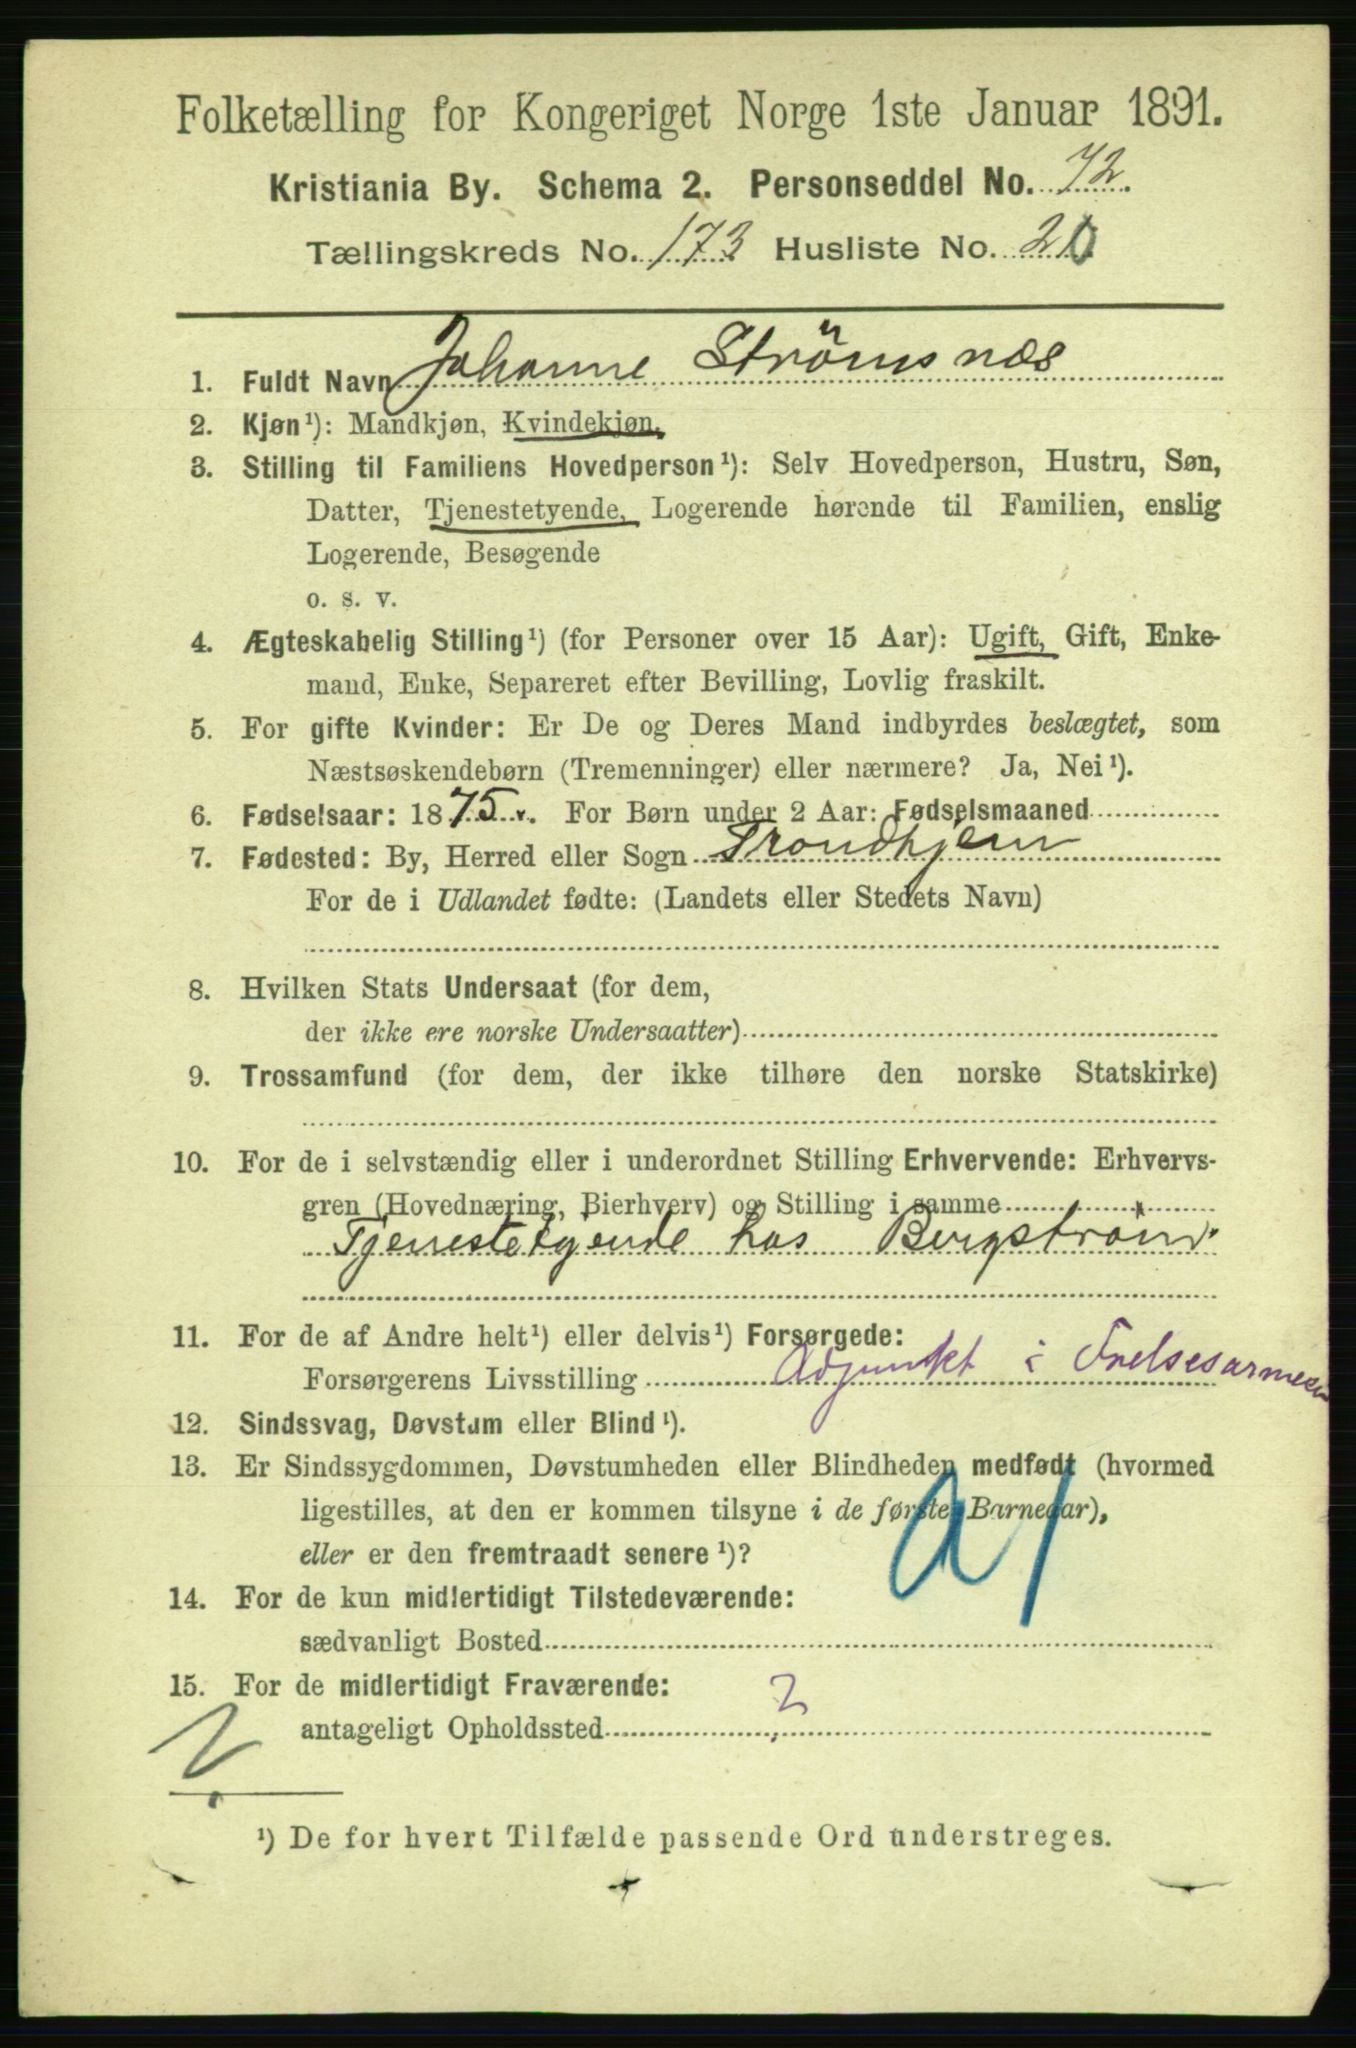 Folketælling for Kongeriget Norge 1ste Januar 1891.
Kristiania By. Schema 2. Personseddel No. 72.
Tællingskreds No. 173 Husliste No. 20
1. Fuldt Navn Johanne Strömsnæs
2. Kjøn¹): Mandkjøn, Kvindekjøn.
3. Stilling til Familiens Hovedperson¹): Selv Hovedperson, Hustru, Søn,
Datter, Tjenestetyende, Logerende hørende til Familien, enslig
Logerende, Besøgende
o. s. v.
4. Ægteskabelig Stilling¹) (for Personer over 15 Aar): Ugift, Gift, Enke-
mand, Enke, Separeret efter Bevilling, Lovlig fraskilt.
5. For gifte Kvinder: Er De og Deres Mand indbyrdes beslægtet, som
Næstsøskendebørn (Tremenninger) eller nærmere? Ja, Nei¹).
6. Fødselsaar: 1875. For Børn under 2 Aar: Fødselsmaaned
7. Fødested: By, Herred eller Sogn Trondhjem
For de i Udlandet fødte: (Landets eller Stedets Navn)
8. Hvilken Stats Undersaat (for dem,
der ikke ere norske Undersaatter)
9. Trossamfund (for dem, der ikke tilhøre den norske Statskirke)
10. For de i selvstændig eller i underordnet Stilling Erhvervende: Erhvervs-
gren (Hovednæring, Bierhverv) og Stilling i samme
Tjenestetyende hos Bergström.
11. For de af Andre helt¹) eller delvis¹) Forsørgede:
Forsørgerens Livsstilling Adjunkt i Frelsesarmeen
12. Sindssvag, Døvstum eller Blind¹).
13. Er Sindssygdommen, Døvstumheden eller Blindheden medfødt (hvormed
ligestilles, at den er kommen tilsyne i de første Barneaar),
eller er den fremtraadt senere¹)?
14. For de kun midlertidigt Tilstedeværende:
sædvanligt Bosted
15. For de midlertidigt Fraværende:
antageligt Opholdssted ?
¹) De for hvert Tilfælde passende Ord understreges.